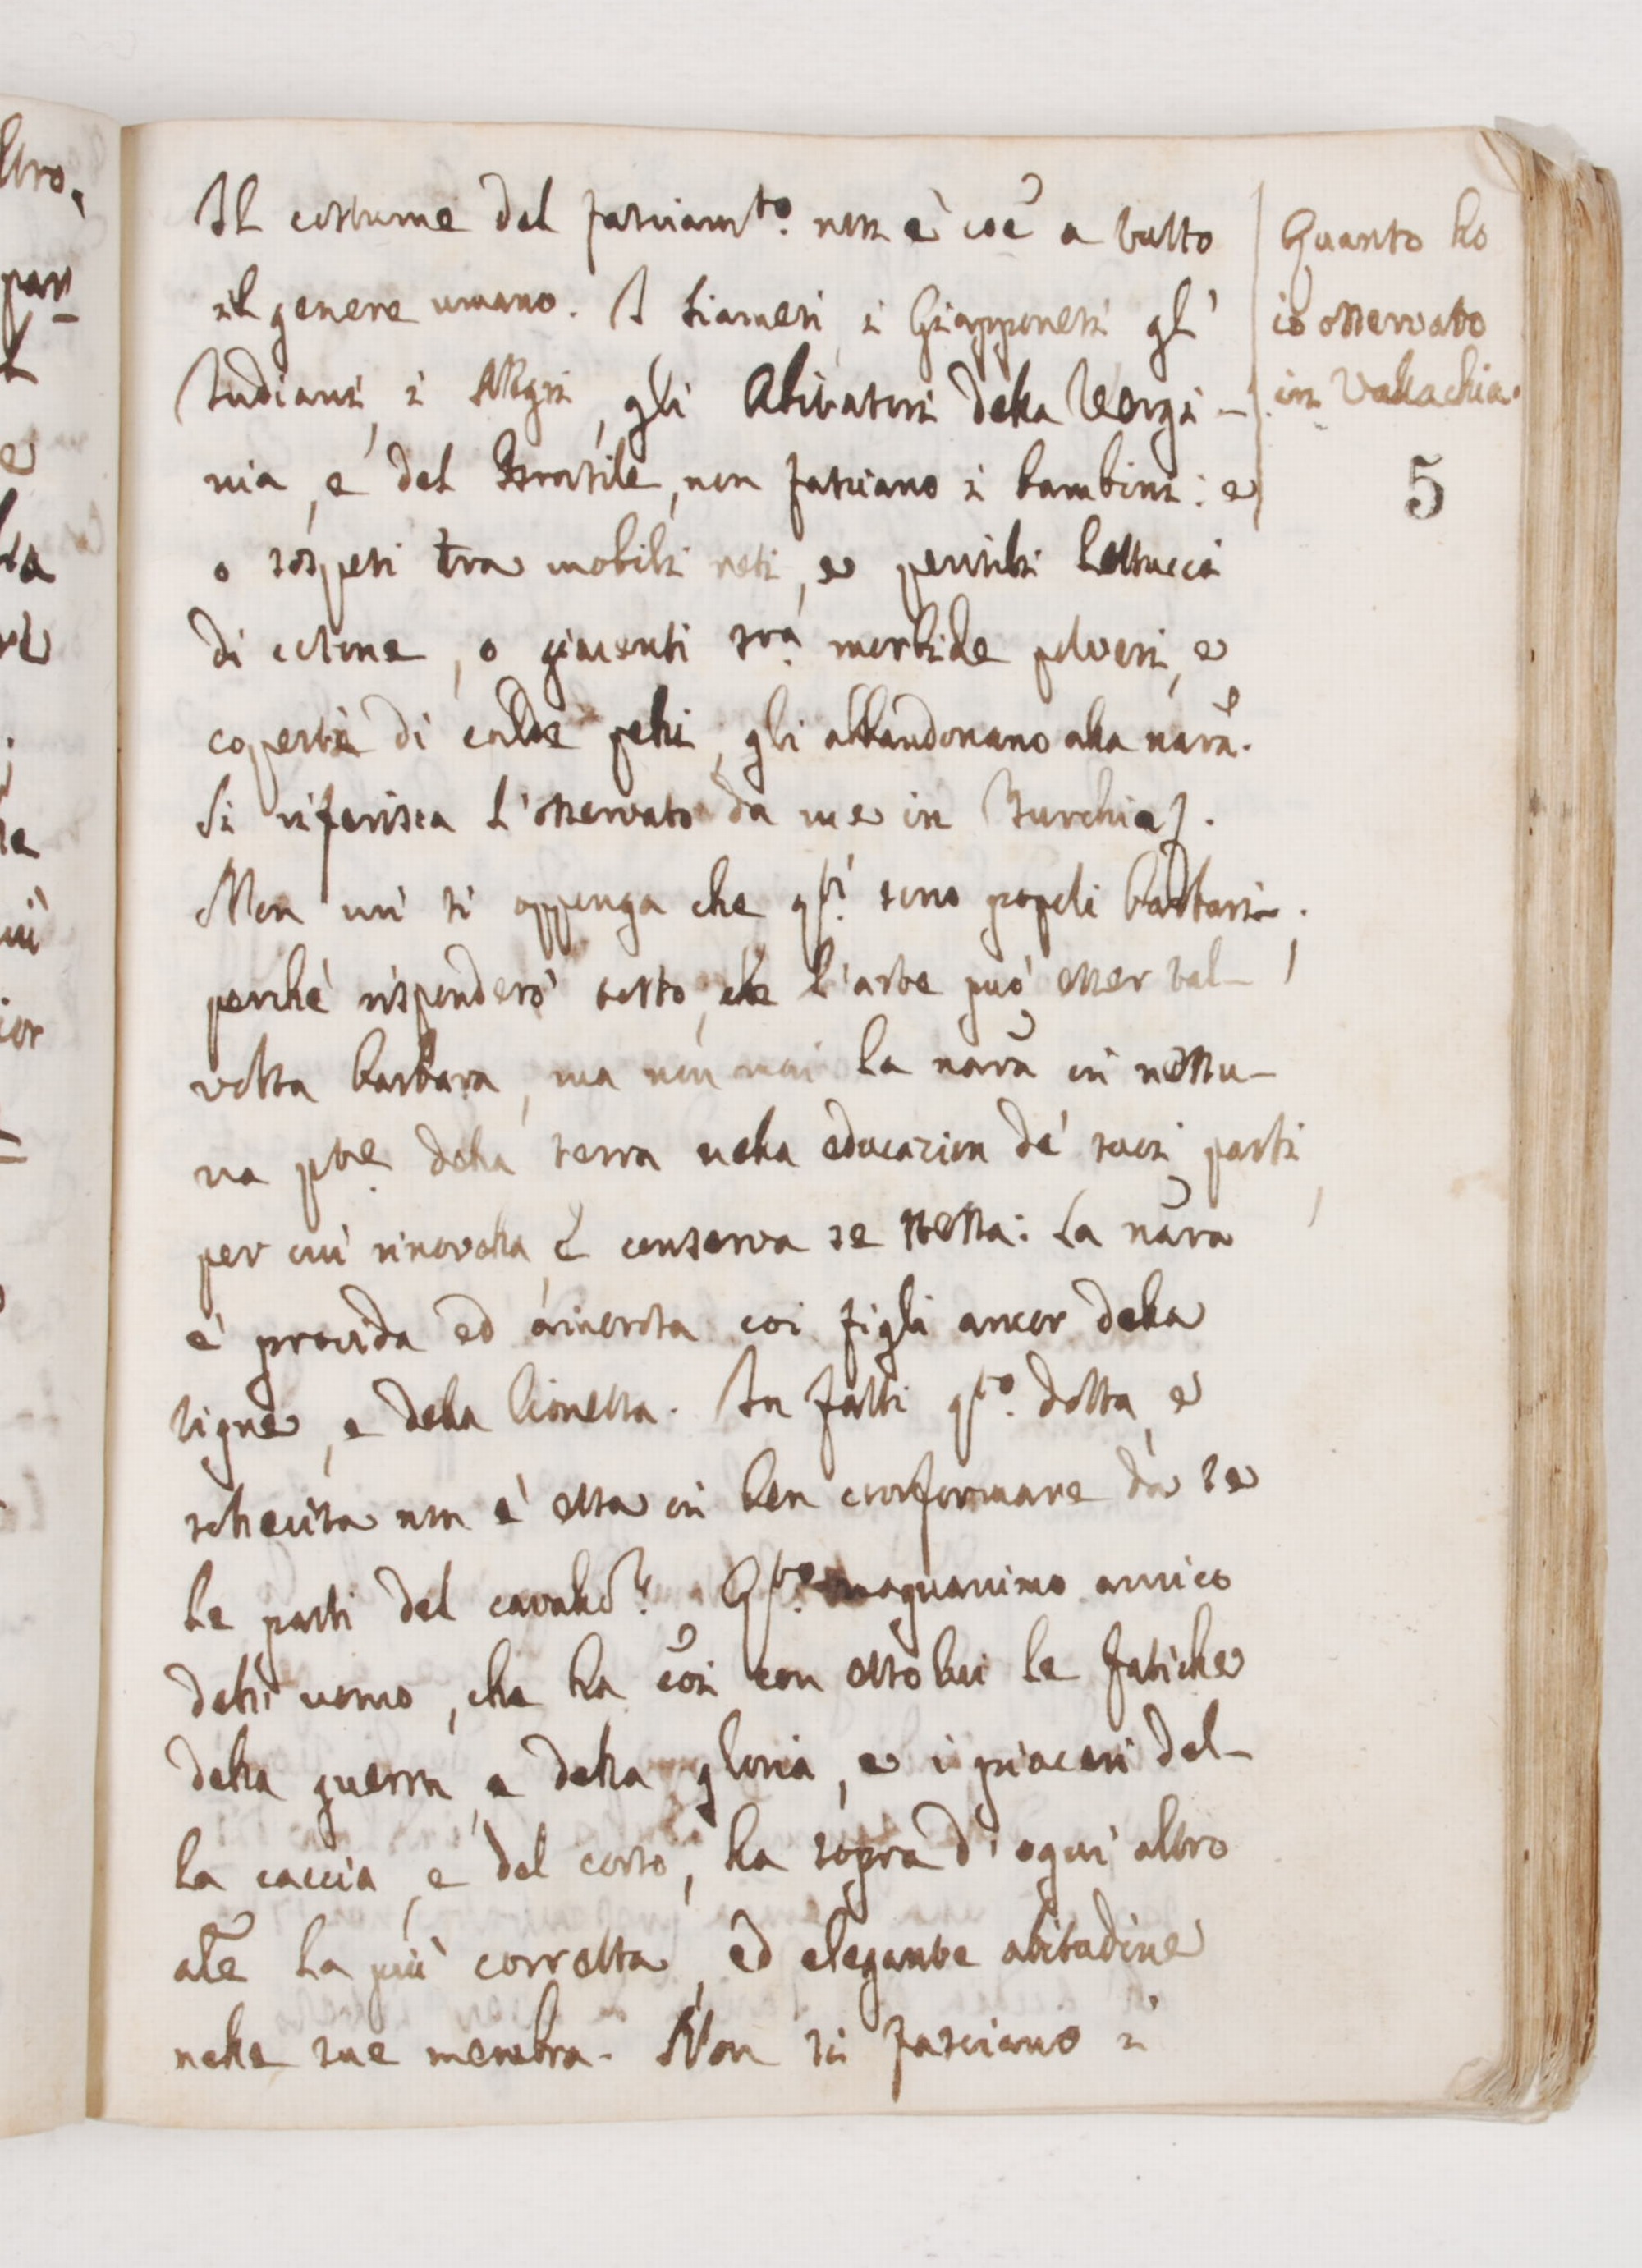 Il costume del fasciam.to non è coẽ a tutto
il genere umano. I Siamesi, i Giapponesi gl'
Indiani, i Negri, gli Abitatori della Vergi-
nia, e del Brasile, non fasciano i bambini: e
o sospesi tra mobili reti, e pensili lettucci
di cotone, o giacenti tra morbide polveri, e
coperti di calde pelli, gli abbandonano alla nar̃a.
Si riferisca l'osservato da me in Turchia].
Non mi si opponga che q.sti sono popoli barbari;
perchè risponderò tosto, che l'arte può esser tal-
volta barbara, ma non mai la nar̃a in nessu-
na p.te della terra nella educazion de' suoi parti,
per cui rinovella, e conserva se stessa: la nar̃a
è provida ed amorosa coi figli ancor della
tigre, e della lionessa. In fatti q.to dotta, e
schecita non è essa in ben conformare da se
le parti del cavallo? Q.sto magnanimo amico
dell' uomo, che ha cõi con esso lui le fatiche
della guerra, e della gloria, e i piaceri del-
la caccia, e del corso, ha sopra d' ogni altro
ale la più corretta, ed elegante abitudine
nelle sue membra. Non si fasciano i
Quanto ho
io osservato
in Vallachia.
5